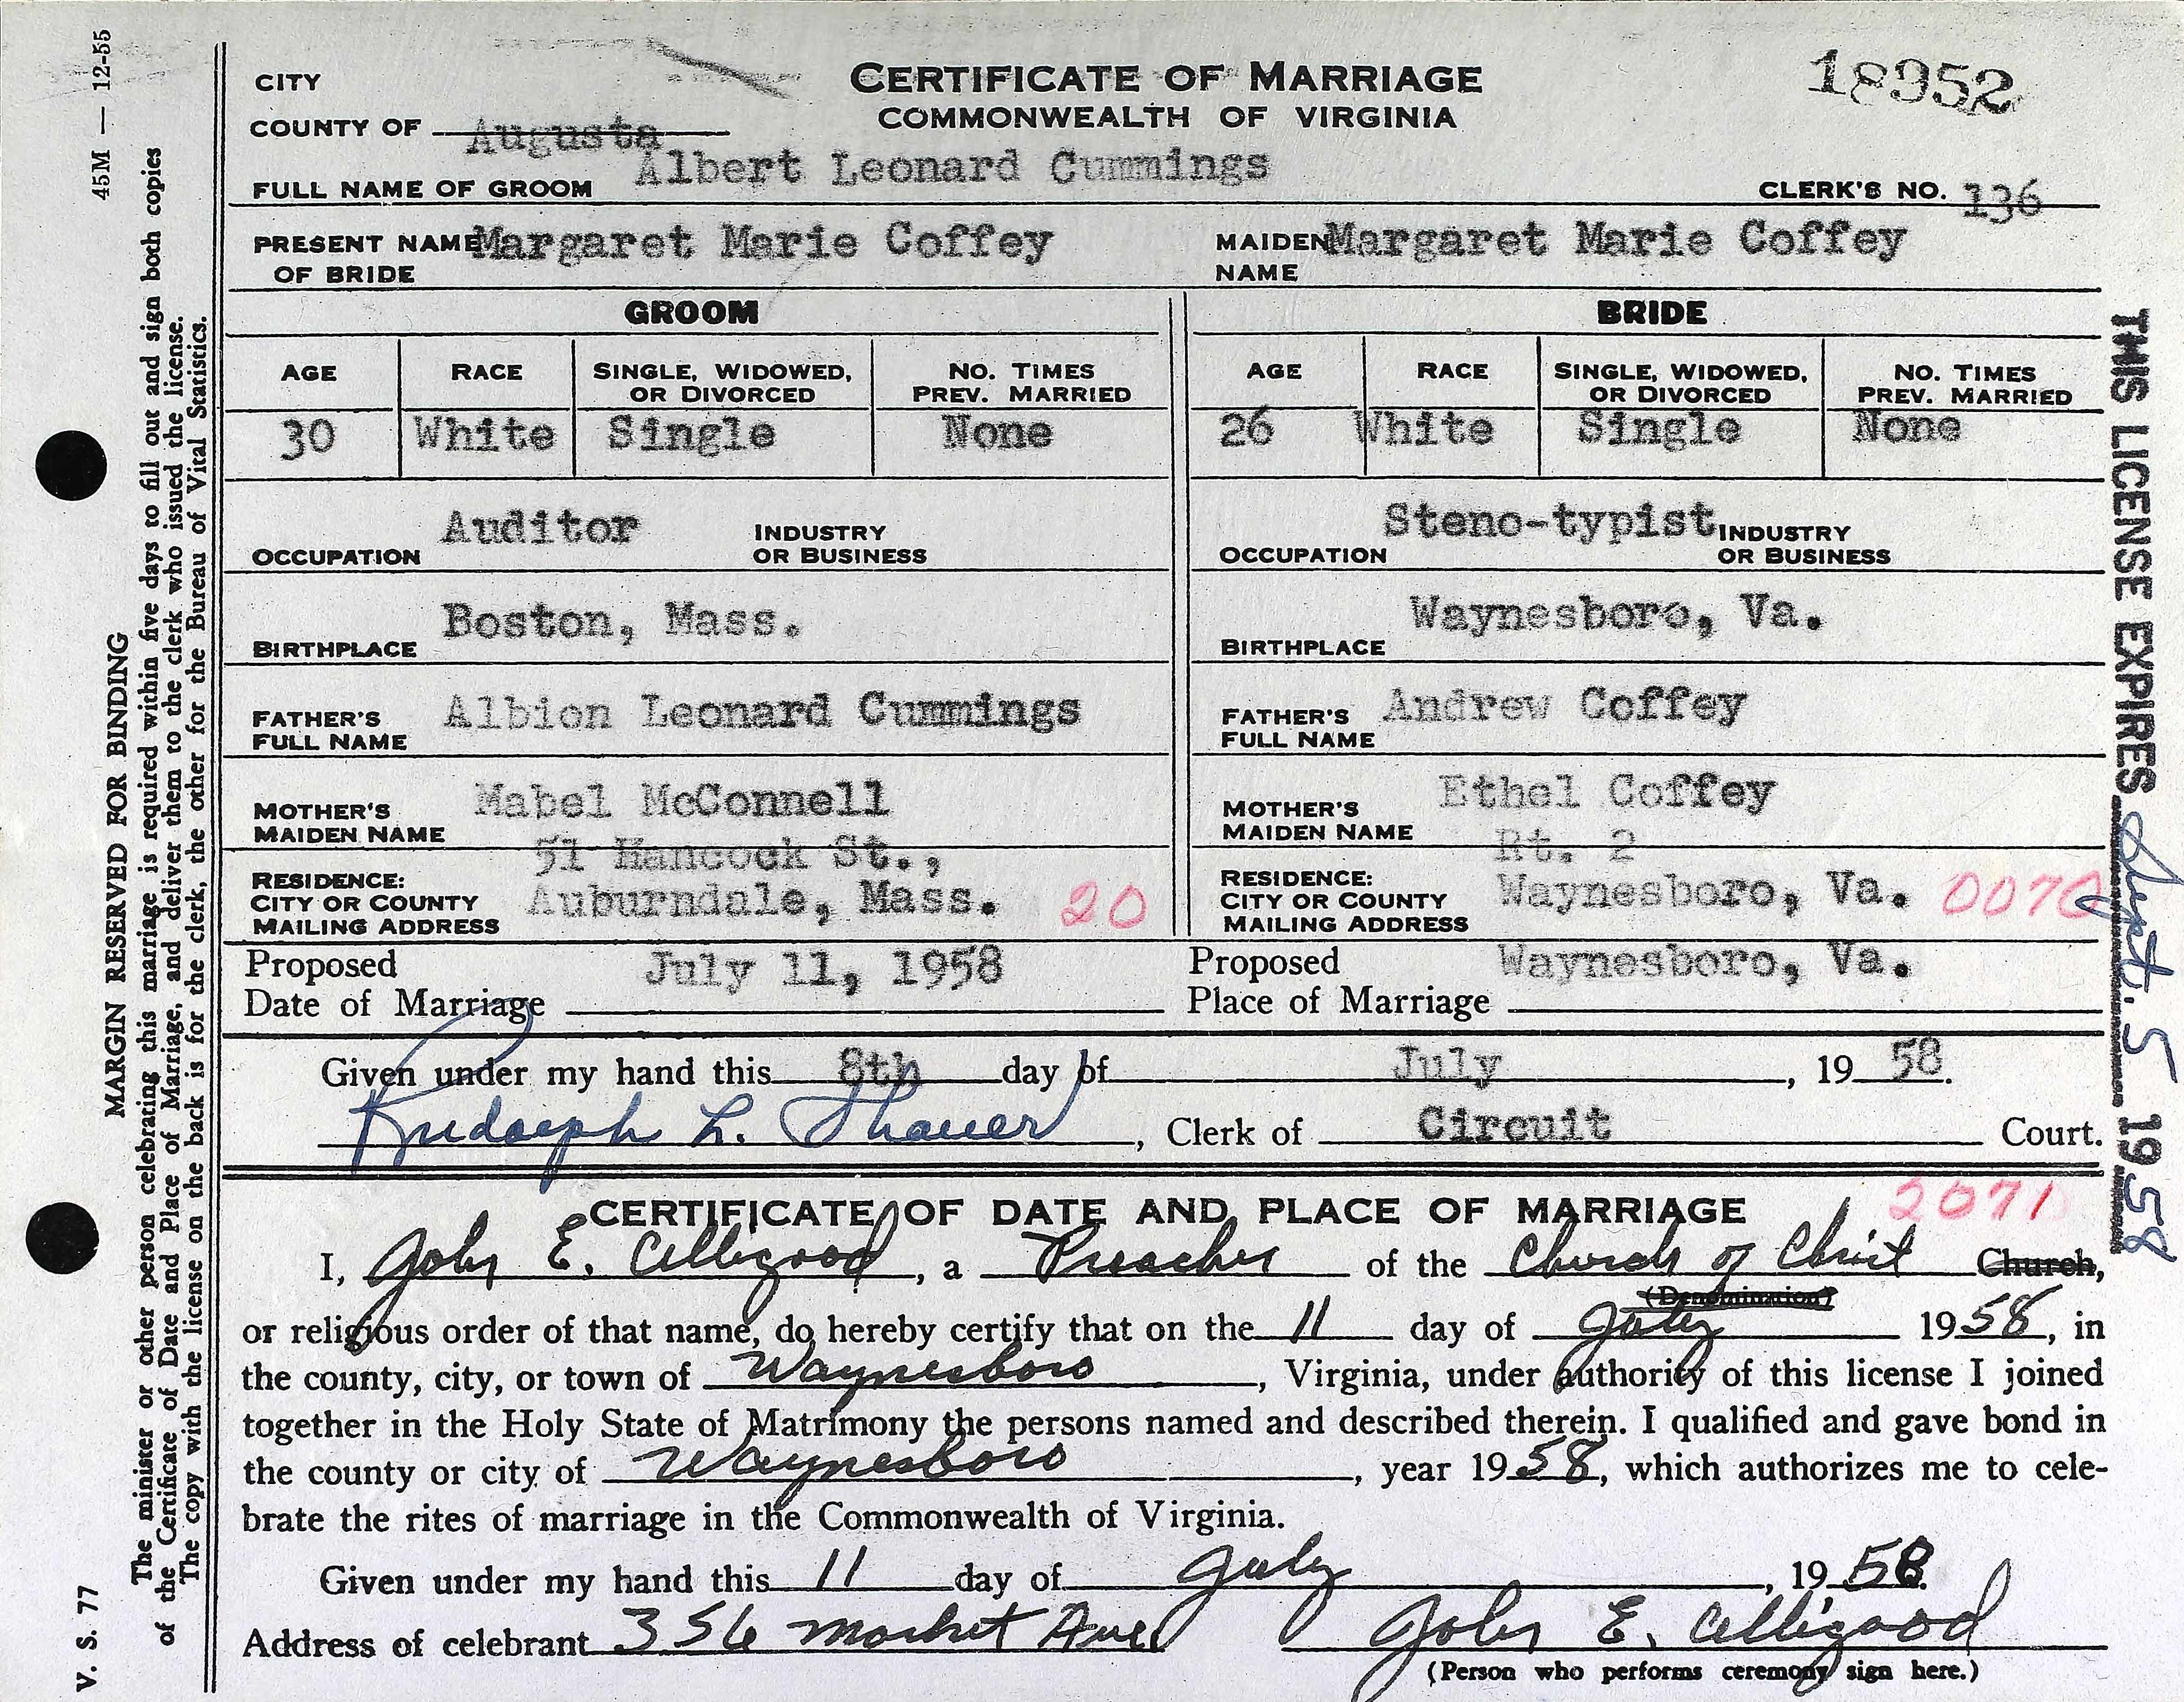 45M — 12-55
CITY
CERTIFICATE OF MARRIAGE
18952
COUNTY OF Augusta
COMMONWEALTH OF VIRGINIA
FULL NAME OF GROOM Albert Leonard Cummings
CLERK'S NO. 136
PRESENT NAME OF BRIDE Margaret Marie Coffey
MAIDEN NAME Margaret Marie Coffey
GROOM
BRIDE
AGE RACE SINGLE, WIDOWED, OR DIVORCED NO. TIMES PREV. MARRIED
AGE RACE SINGLE, WIDOWED, OR DIVORCED NO. TIMES PREV. MARRIED
30 White Single None
26 White Single None
OCCUPATION Auditor INDUSTRY OR BUSINESS
OCCUPATION Steno-typist INDUSTRY OR BUSINESS
BIRTHPLACE Boston, Mass.
BIRTHPLACE Waynesboro, Va.
FATHER'S FULL NAME Albion Leonard Cummings
FATHER'S FULL NAME Andrew Coffey
MOTHER'S MAIDEN NAME Mabel McConnell
MOTHER'S MAIDEN NAME Ethel Coffey
RESIDENCE: CITY OR COUNTY MAILING ADDRESS 51 Hancock St., Auburndale, Mass. 20
RESIDENCE: CITY OR COUNTY MAILING ADDRESS Rt. 2 Waynesboro, Va. 0070
Proposed Date of Marriage July 11, 1958
Proposed Place of Marriage Waynesboro, Va.
Given under my hand this 8th day of July, 1958.
Rudolph L. Shaver, Clerk of Circuit Court.
CERTIFICATE OF DATE AND PLACE OF MARRIAGE
2071
I, John E. Alligood, a Preacher of the Church of Christ Church,
(Denomination)
or religious order of that name, do hereby certify that on the 11 day of July 1958, in
the county, city, or town of Waynesboro, Virginia, under authority of this license I joined
together in the Holy State of Matrimony the persons named and described therein. I qualified and gave bond in
the county or city of Waynesboro, year 1958, which authorizes me to cele-
brate the rites of marriage in the Commonwealth of Virginia.
Given under my hand this 11 day of July, 1958.
Address of celebrant 356 Market Ave John E. Alligood
(Person who performs ceremony sign here.)
V. S. 77
MARGIN RESERVED FOR BINDING
The minister or other person celebrating this marriage is required within five days to fill out and sign both copies
of the Certificate of Date and Place of Marriage, and deliver them to the clerk who issued the license.
The copy with the license on the back is for the clerk, the other for the Bureau of Vital Statistics.
THIS LICENSE EXPIRES Sept. 5 1958